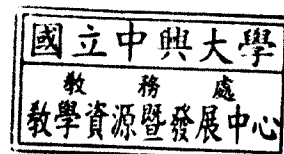 國立中興大學
教務處
教學資源暨發展中心